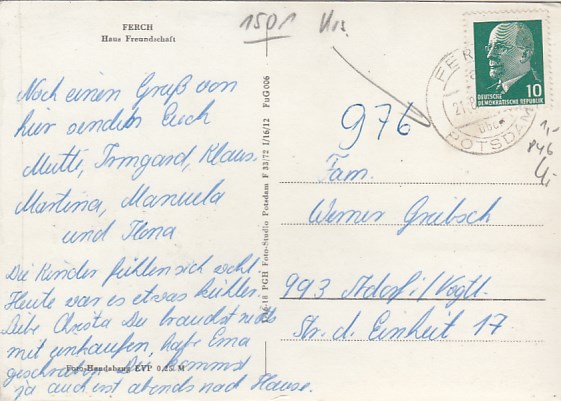 FERCH
Haus Freundschaft
1501
Noch einen Gruß von
hier senden Euch
Mutti, Irmgard, Klaus
Martina, Manuela
und Ilona
Die Kinder fühlen sich wohl.
Heute war es etwas kühler.
Liebe Christa Du brauchst nichts
mit einkaufen, habe Erna
geschrieben. Du kommst
ja auch erst abends nach Hause.
Foto-Handabzug EVP 0,25 M
PGH Foto-Studio Potsdam F 33/72 I/16/12 FuG 006
DEUTSCHE
DEMOKRATISCHE REPUBLIK
10
POTSDAM
976
Fam.
Werner Greibsch
993 Adorf/Vogtl.
Str. d. Einheit 17
1,-
846